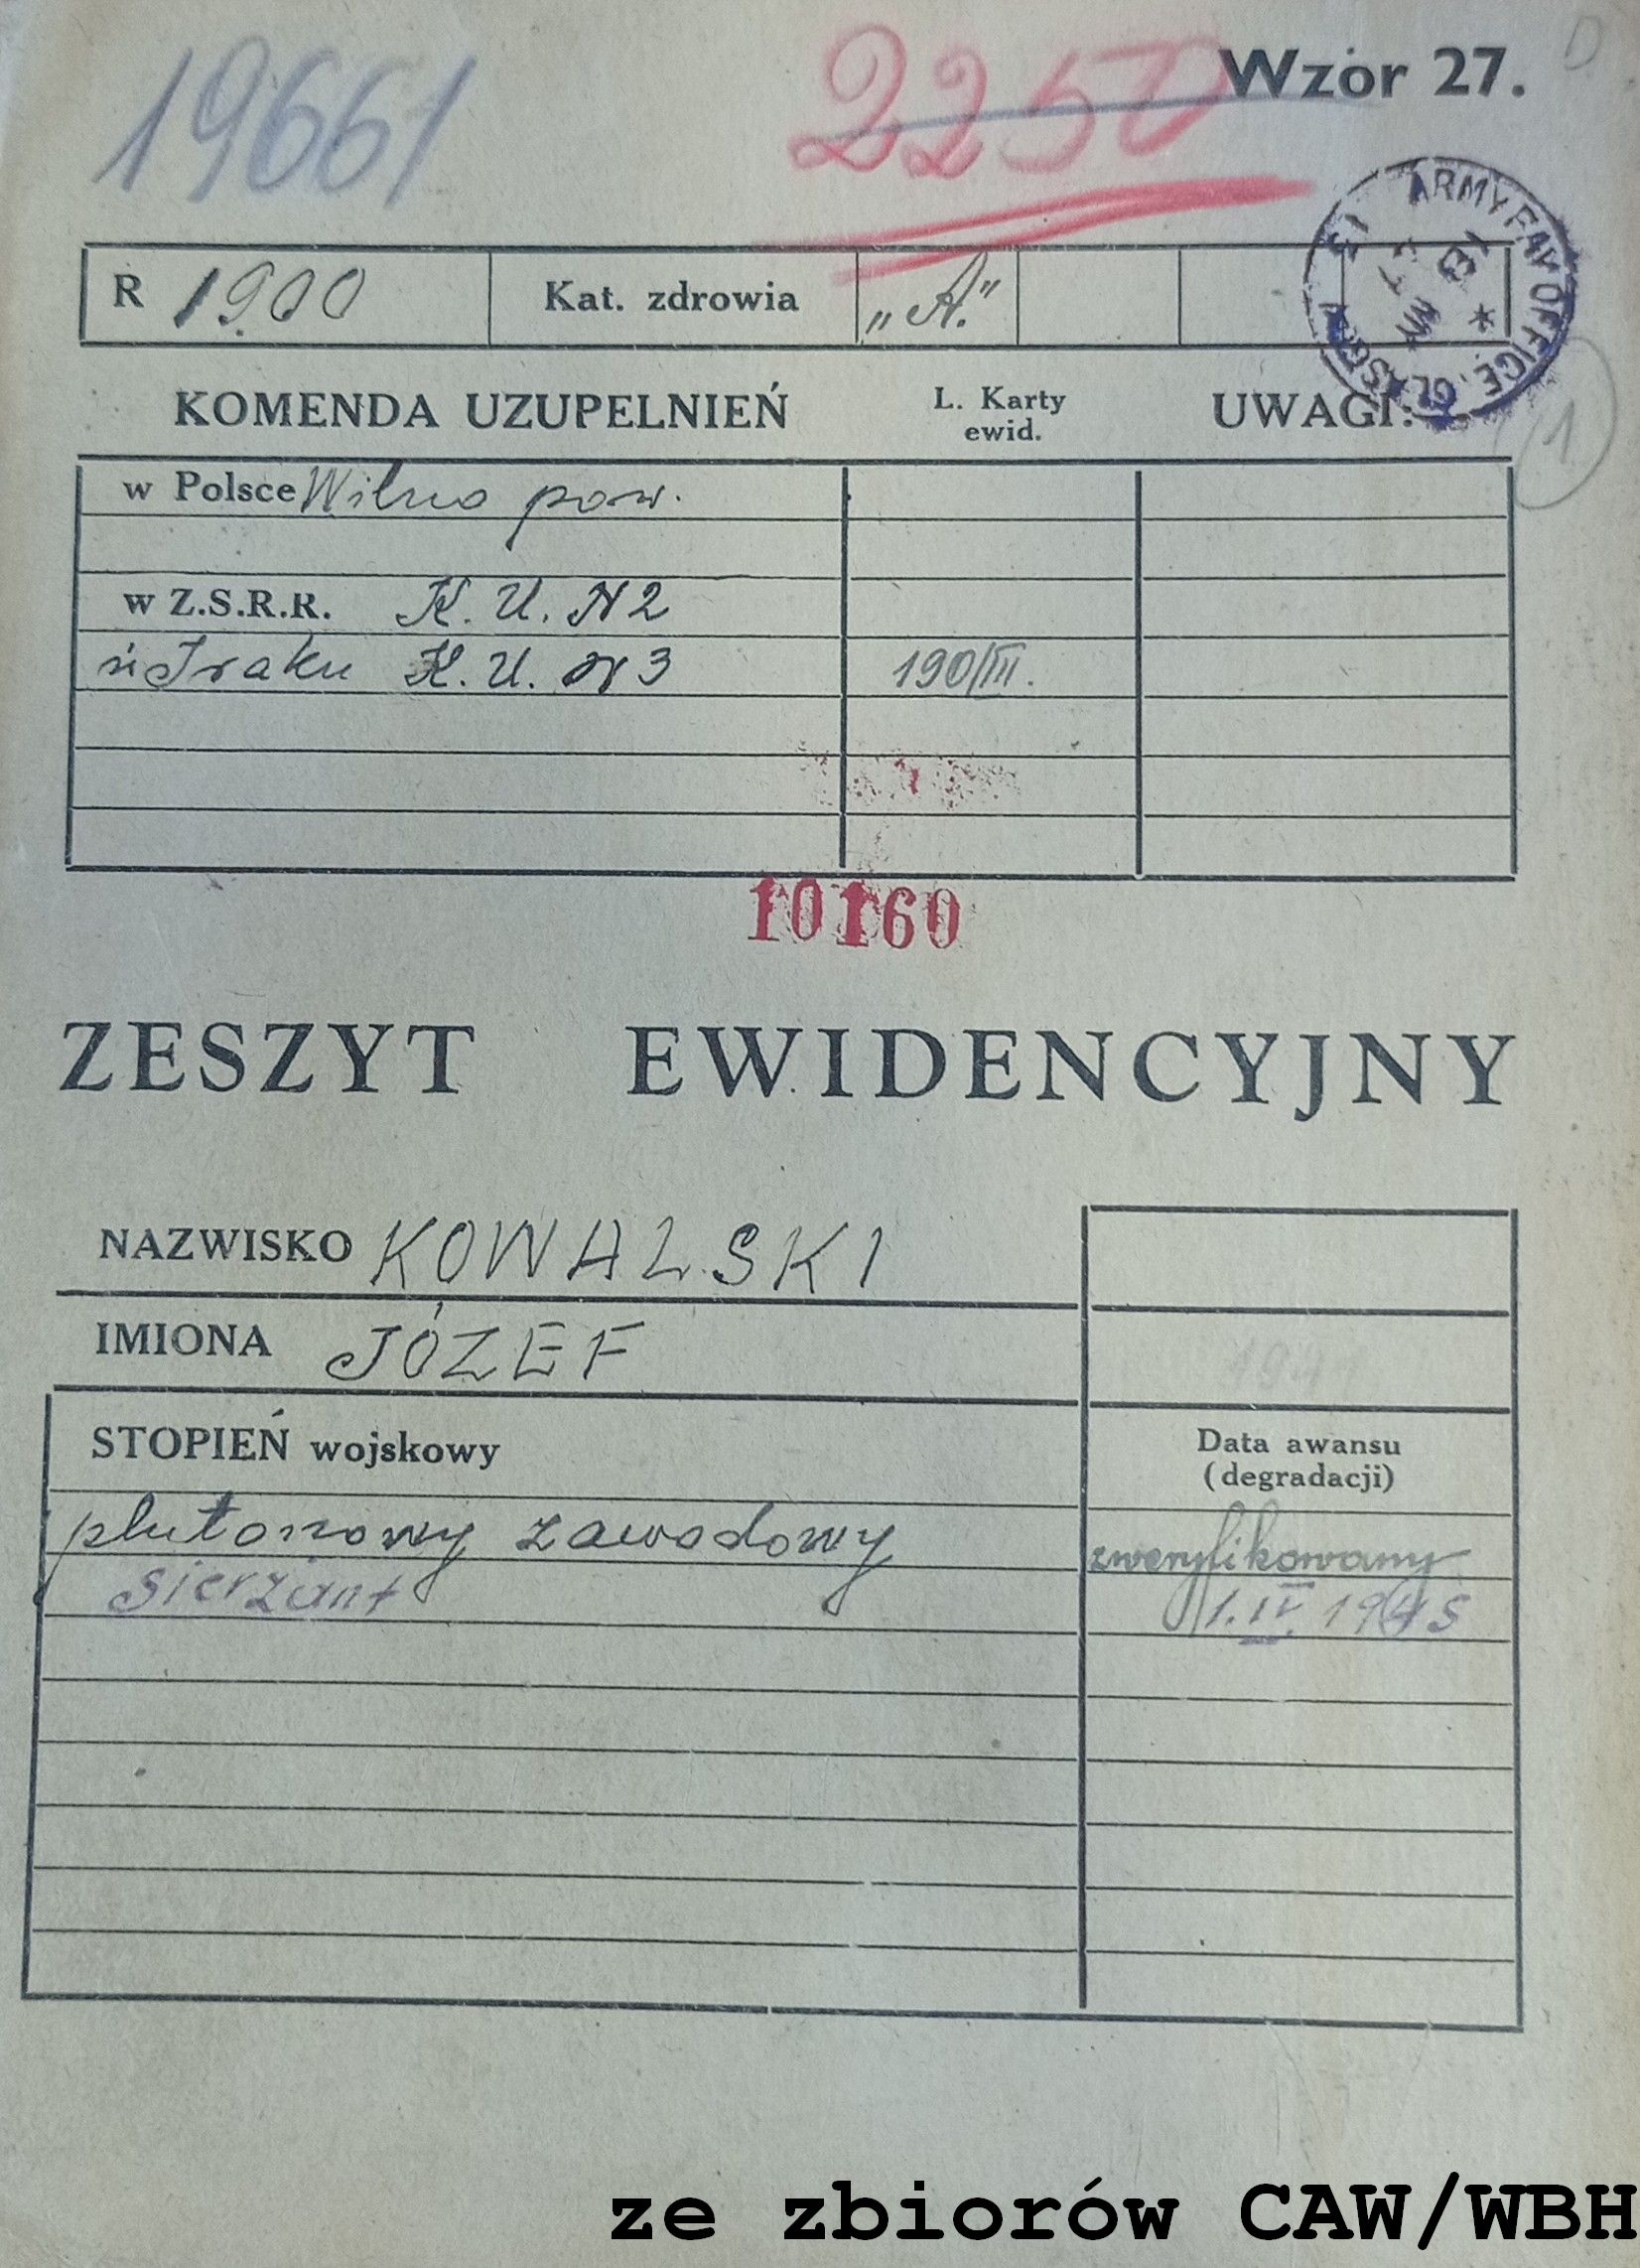 19661
2250
Wzór 27.
ARMY PAY OFFICE. GLASGOW
13
R 1900 Kat. zdrowia „A."
KOMENDA UZUPEŁNIEŃ L. Karty ewid. UWAGI:
1
w Polsce Wilno pow.
w Z.S.R.R. K. U. N2
w Iraku K. U. N3 190/III.
10160
ZESZYT EWIDENCYJNY
NAZWISKO KOWALSKI
IMIONA JÓZEF
STOPIEŃ wojskowy Data awansu
(degradacji)
plutonowy zawodowy zweryfikowany
sierżant 1.IV.1945
ze zbiorów CAW/WBH